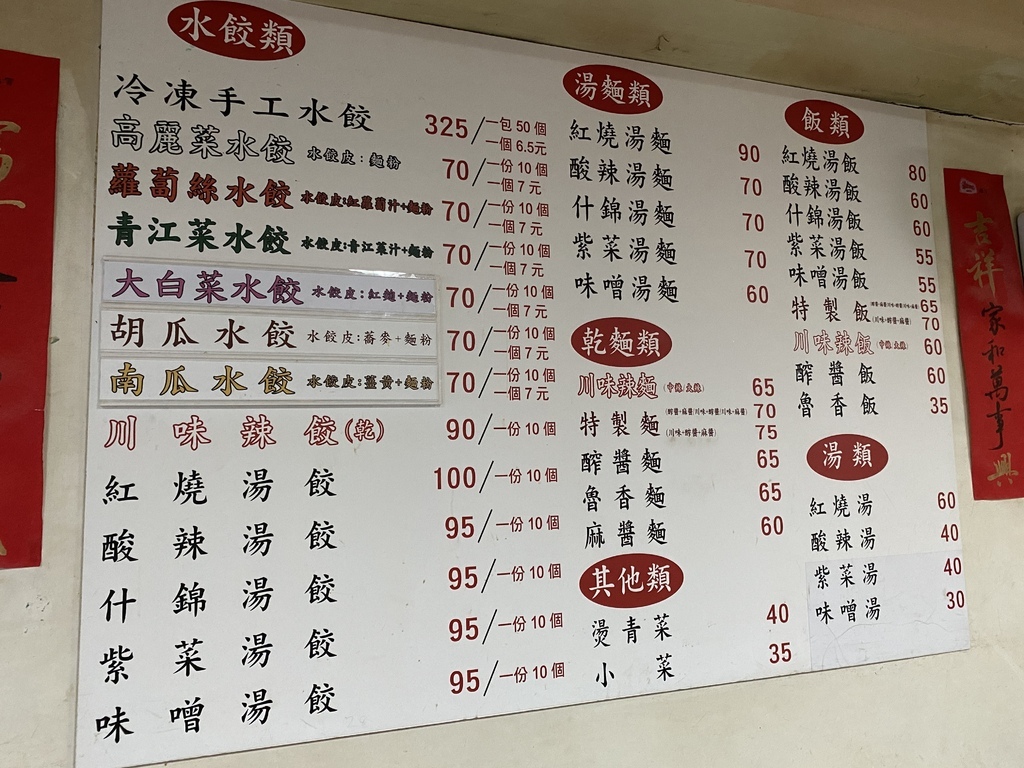 水餃類
冷凍手工水餃 325/一包50個 一個6.5元
高麗菜水餃 水餃皮:麵粉 70/一份10個 一個7元
蘿蔔絲水餃 水餃皮:紅蘿蔔汁+麵粉 70/一份10個 一個7元
青江菜水餃 水餃皮:青江菜汁+麵粉 70/一份10個 一個7元
大白菜水餃 水餃皮:紅麴+麵粉 70/一份10個 一個7元
胡瓜水餃 水餃皮:蕎麥+麵粉 70/一份10個 一個7元
南瓜水餃 水餃皮:薑黃+麵粉 70/一份10個 一個7元
川味辣餃(乾) 90/一份10個
紅燒湯餃 100/一份10個
酸辣湯餃 95/一份10個
什錦湯餃 95/一份10個
紫菜湯餃 95/一份10個
味噌湯餃 95/一份10個
湯麵類
紅燒湯麵 90
酸辣湯麵 70
什錦湯麵 70
紫菜湯麵 70
味噌湯麵 60
乾麵類
川味辣麵(中辣/大辣) 65
特製麵 (醡醬+麻醬/川味+醡醬/川味+麻醬) 70
(川味+醡醬+麻醬) 75
醡醬麵 65
魯香麵 65
麻醬麵 60
其他類
燙青菜 40
小菜 35
飯類
紅燒湯飯 80
酸辣湯飯 60
什錦湯飯 60
紫菜湯飯 55
味噌湯飯 55
特製飯 (醡醬+麻醬/川味+醡醬/川味+麻醬) 65
(川味+醡醬+麻醬) 70
川味辣飯(中辣/大辣) 60
醡醬飯 60
魯香飯 35
湯類
紅燒湯 60
酸辣湯 40
紫菜湯 40
味噌湯 30
吉祥家和萬事興